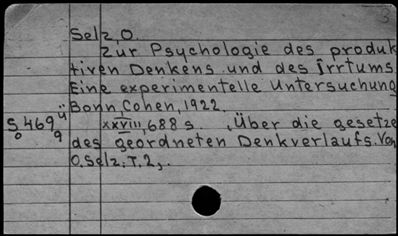 3
Selz, O.
Zur Psychologie des produk
tiven Denkens und des Irrtums
Eine experimentelle Untersuchung
Bonn, Cohen, 1922.
S 469 ü xxviii, 688 s. , Über die gesetze
o 9 des geordneten Denkverlaufs. Von
O. Selz. T. 2, .